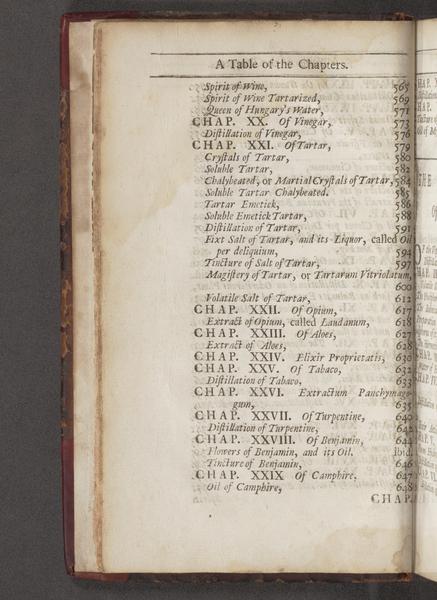 A Table of the Chapters.
Spirit of Wine, 565
Spirit of Wine Tartarized, 569
Queen of Hungary's Water, 571
CHAP. XX. Of Vinegar, 573
Distillation of Vinegar, 576
CHAP. XXI. Of Tartar, 579
Crystals of Tartar, 580
Soluble Tartar, 582
Chalybeated, or Martial Crystals of Tartar, 584
Soluble Tartar Chalybeated. 585
Tartar Emetick, 586
Soluble Emetick Tartar, 588
Distillation of Tartar, 591
Fixt Salt of Tartar, and its Liquor, called Oil
per deliquium, 594
Tincture of Salt of Tartar, 597
Magistery of Tartar, or Tartarum Vitriolatum,
600
Volatile Salt of Tartar, 612
CHAP. XXII. Of Opium, 617
Extract of Opium, called Laudanum, 618
CHAP. XXIII. Of Aloes, 627
Extract of Aloes, 628
CHAP. XXIV. Elixir Proprietatis, 630
CHAP. XXV. Of Tabaco, 632
Distillation of Tabaco, 633
CHAP. XXVI. Extractum Panchymago-
gum, 635
CHAP. XXVII. Of Turpentine, 640
Distillation of Turpentine, 642
CHAP. XXVIII. Of Benjamin, 644
Flowers of Benjamin, and its Oil. Ibid.
Tincture of Benjamin, 646
CHAP. XXIX Of Camphire, 647
Oil of Camphire, 648
CHAP.
THE